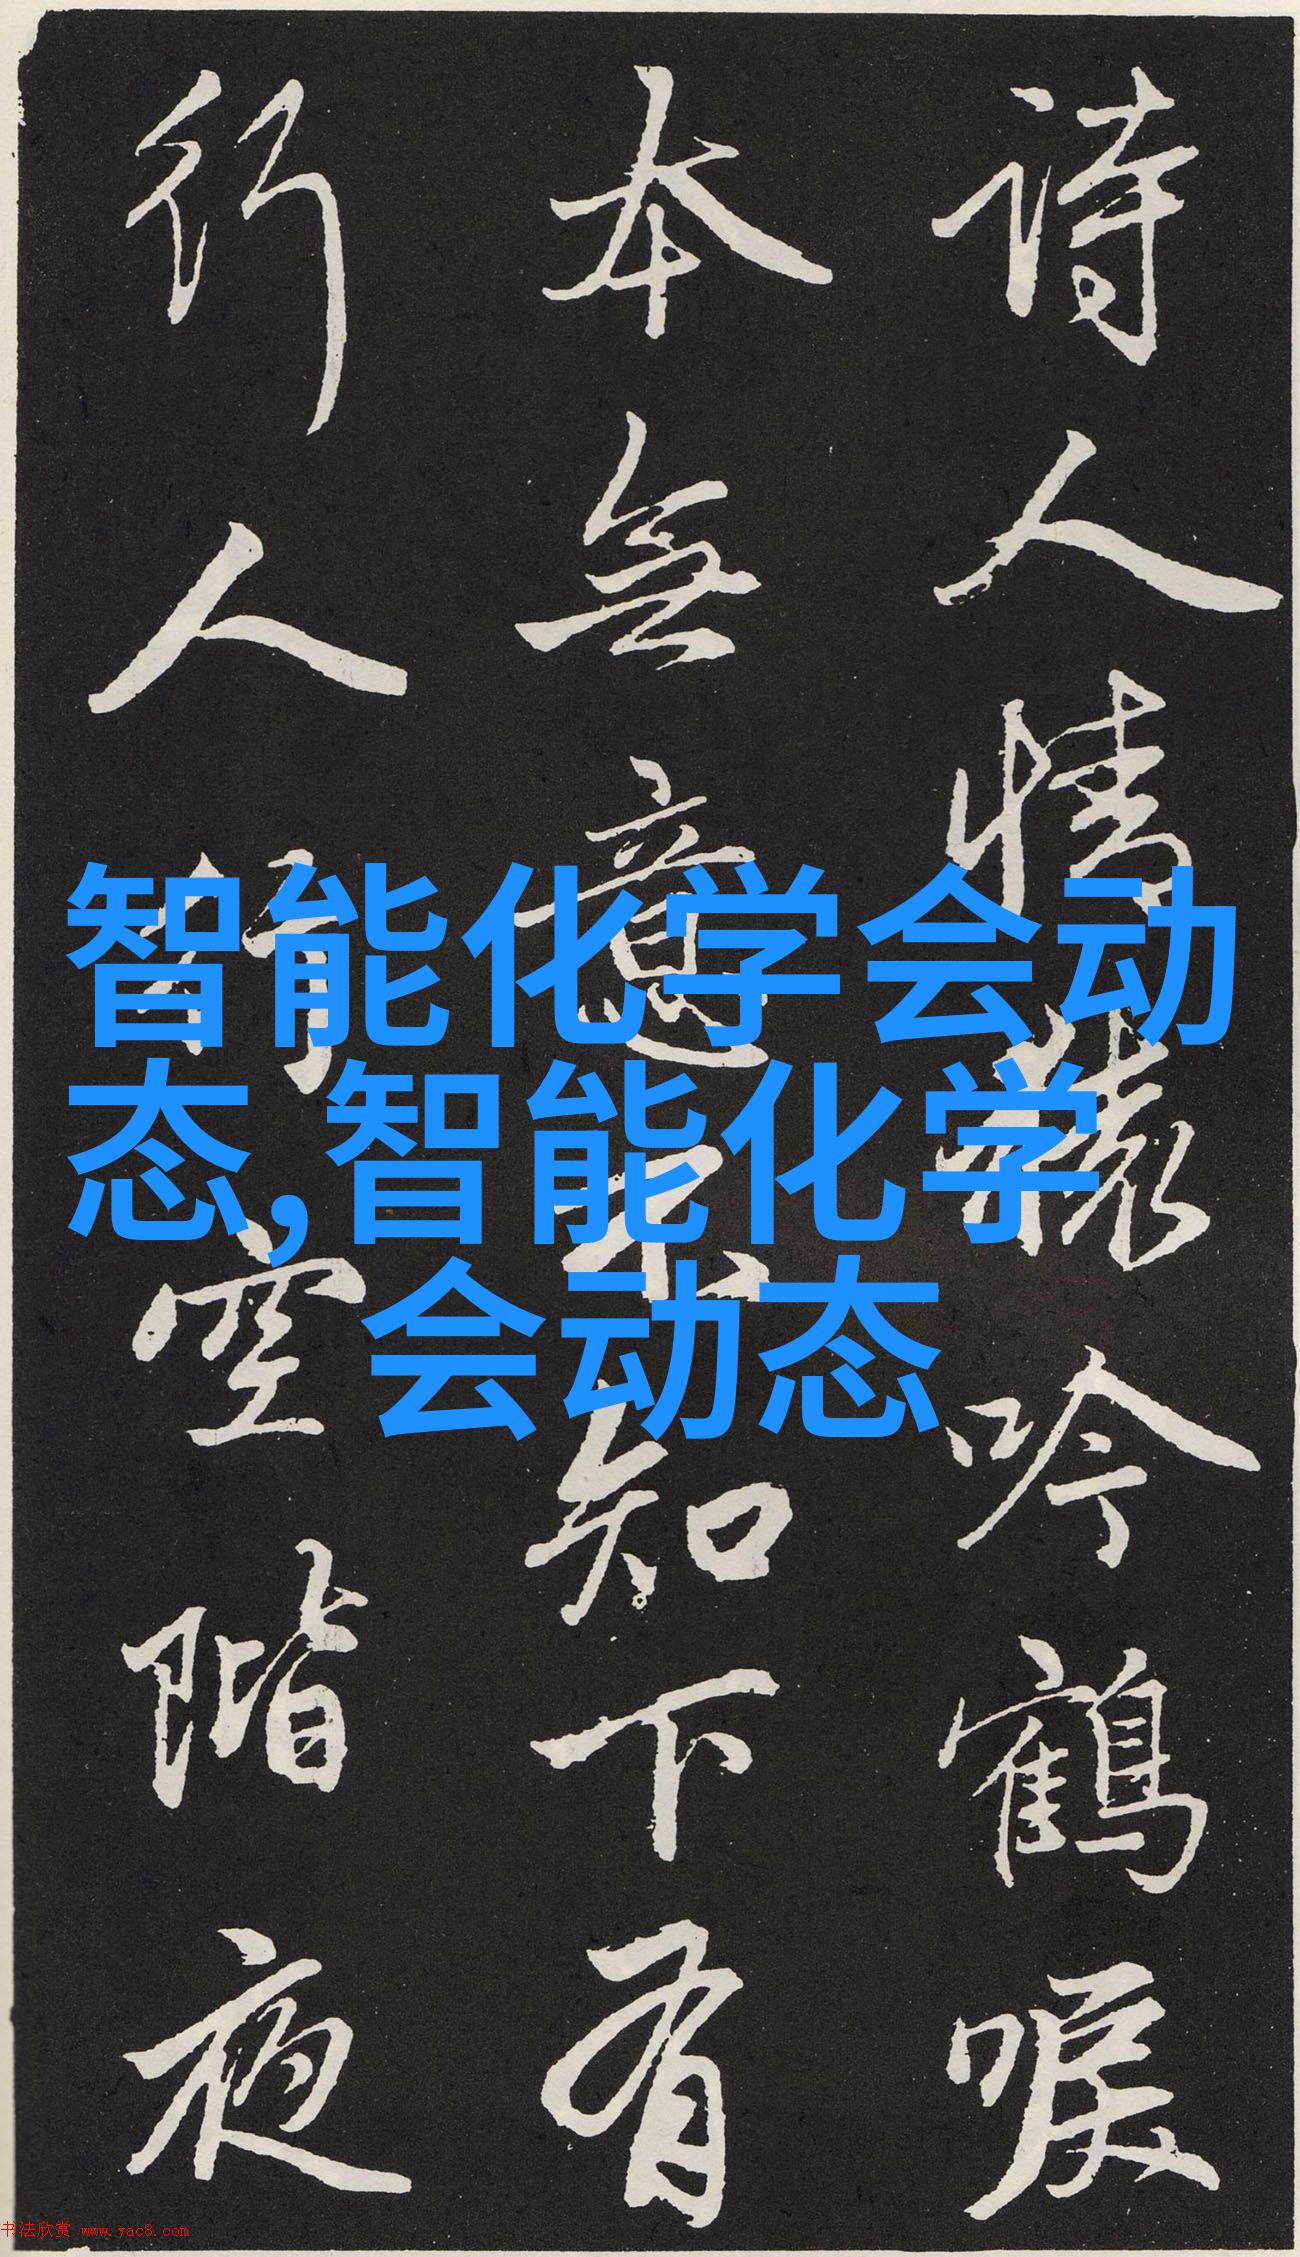 詩人情猿吟鶴唳
本無意不知下有
行人行空階夜
智能化学会动
态,智能化学
会动态
书法欣赏 www.yac8.com